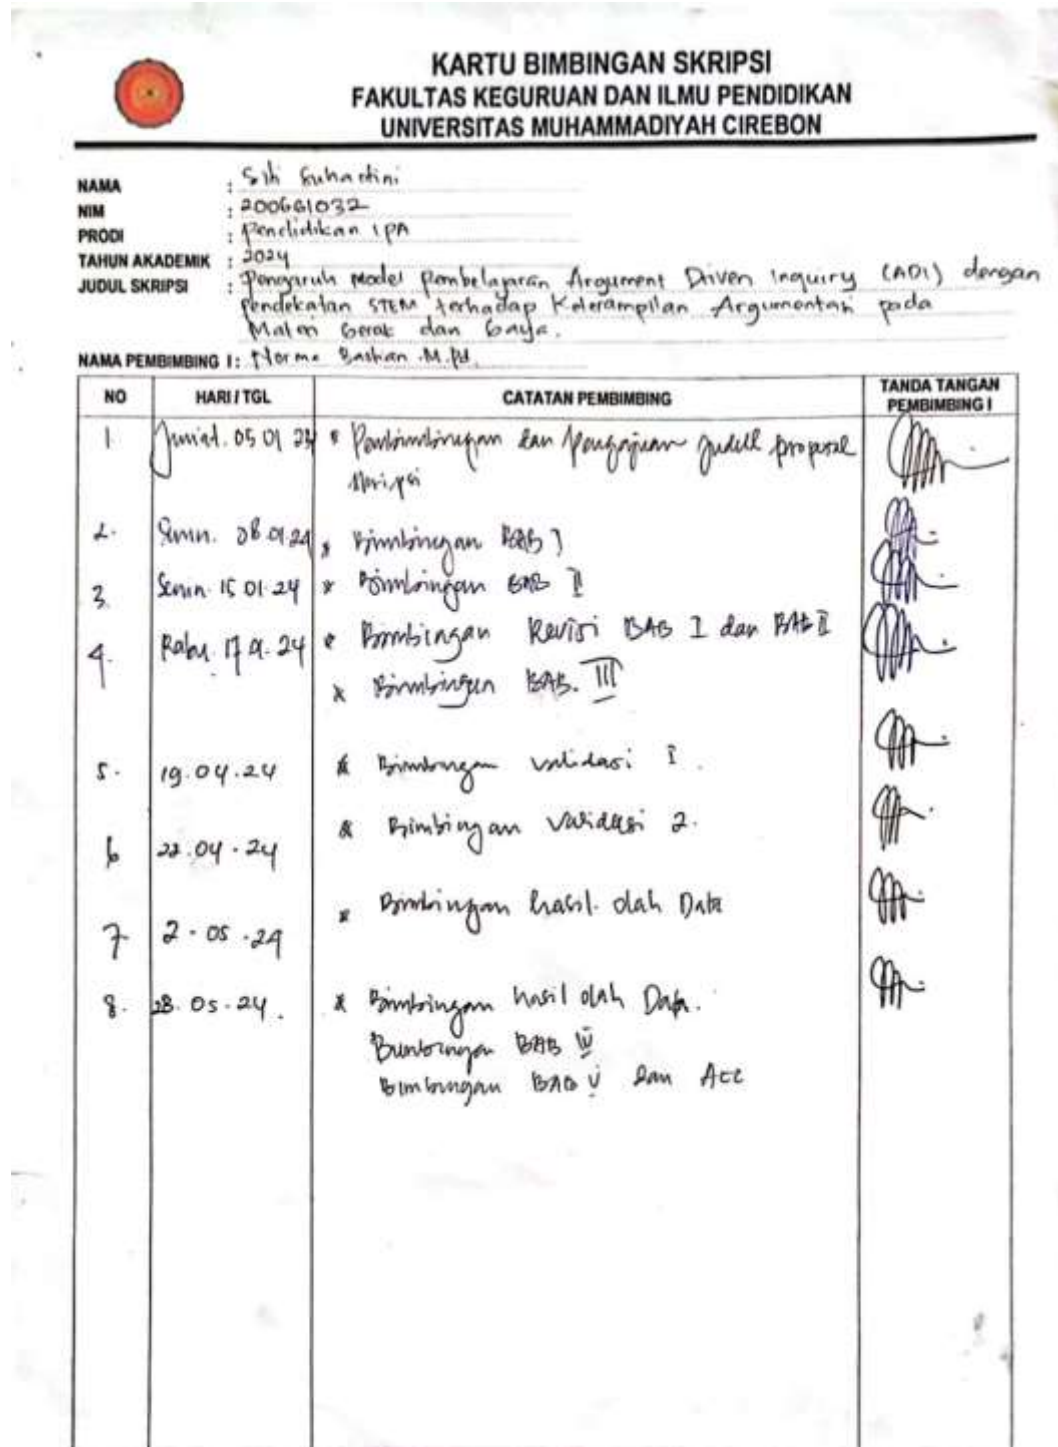 KARTU BIMBINGAN SKRIPSI
FAKULTAS KEGURUAN DAN ILMU PENDIDIKAN
UNIVERSITAS MUHAMMADIYAH CIREBON
NAMA : Siti Suhartini
NIM : 200661032
PRODI : Pendidikan IPA
TAHUN AKADEMIK : 2024
JUDUL SKRIPSI : Pengaruh Model Pembelajaran Argument Driven Inquiry (ADI) dengan
Pendekatan STEM terhadap Keterampilan Argumentasi pada
Materi Gerak dan Gaya.
NAMA PEMBIMBING I : Norma Bastian .M.Pd.
NO HARI / TGL CATATAN PEMBIMBING TANDA TANGAN
PEMBIMBING I
1. Jum'at. 05 01 24 * dan Pengajuan judul proposal
skripsi
2. Senin. 08.01.24 * Bimbingan BAB I
3. Senin. 15 01.24 * Bimbingan BAB II
4. Rabu. 17 01.24 * Bimbingan Revisi BAB I dan BAB II
* Bimbingan BAB. III
5. 19.04.24 * Bimbingan validasi I.
6 22.04.24 * Bimbingan validasi 2.
7 2.05.24 * Bimbingan hasil olah Data
8. 28.05.24. * Bimbingan hasil olah Data.
Bimbingan BAB IV
Bimbingan BAB V dan Acc